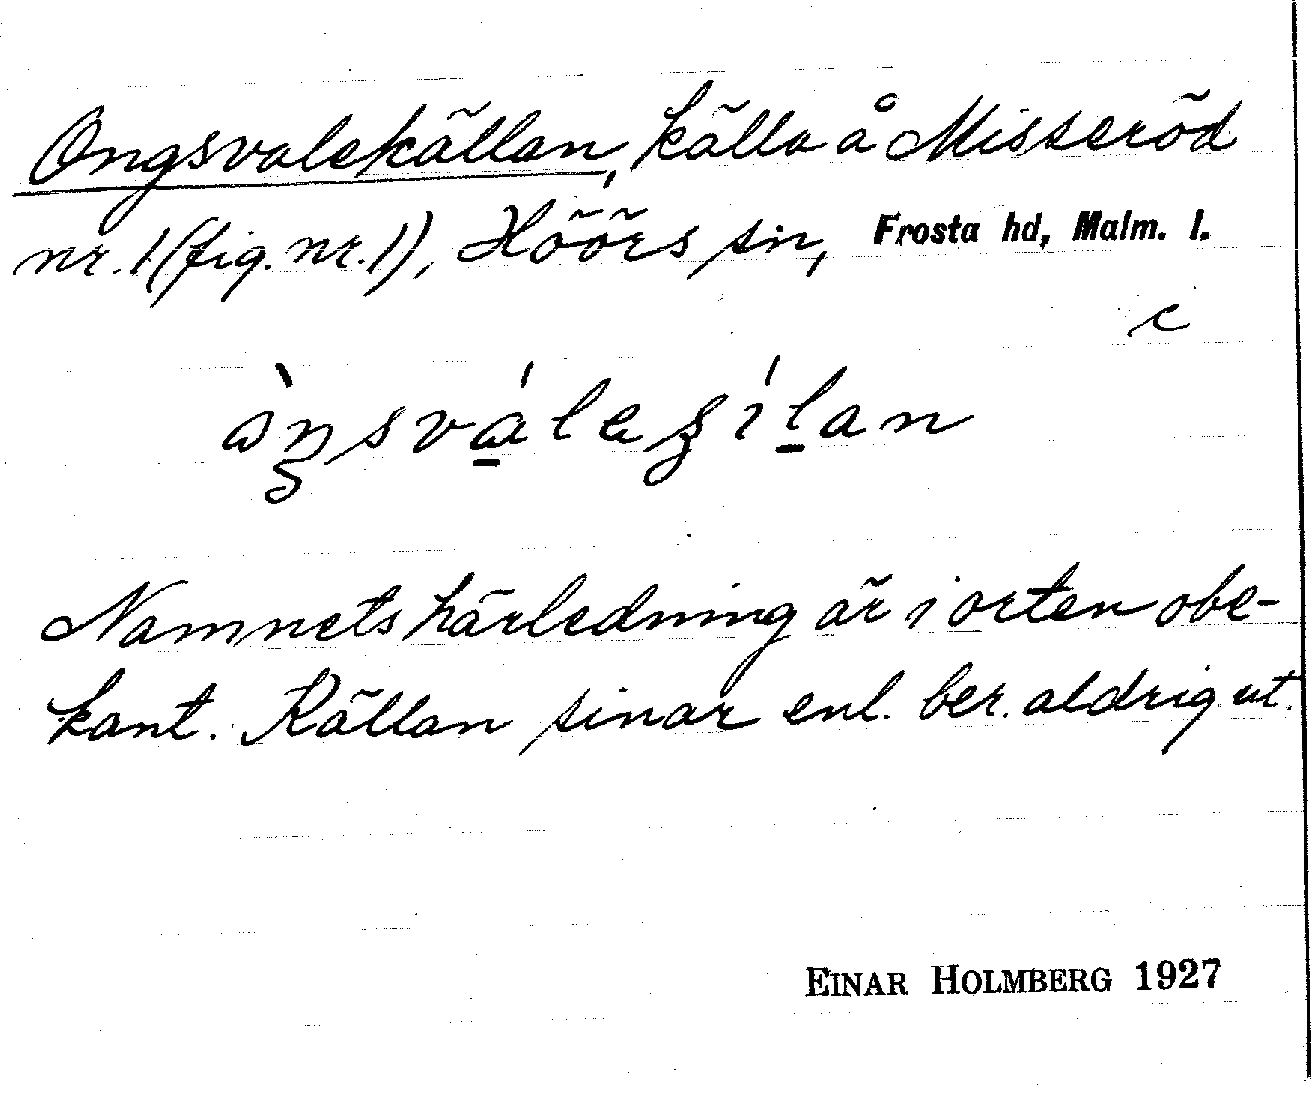 Ongsvalekällan, källa å Misseröd
nr. 1 (fig. nr. 1), Höörs sn, Frosta hd, Malm. l.
c
Namnets härledning är i orten obe-
kant. Källan sinar enl. ber. aldrig ut.
EINAR HOLMBERG 1927